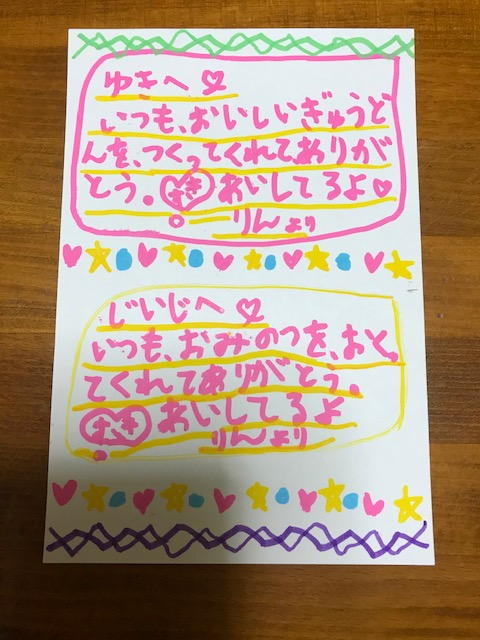 ゆきへ♡
いつも、おいしいぎゅうど
んを、つくってくれて、ありが
とう。すき あいしてるよ♡
りんより
じいじへ♡
いつも、おみのつを、おと、
てくれてありがとう。
すき あいしてるよ
りんより